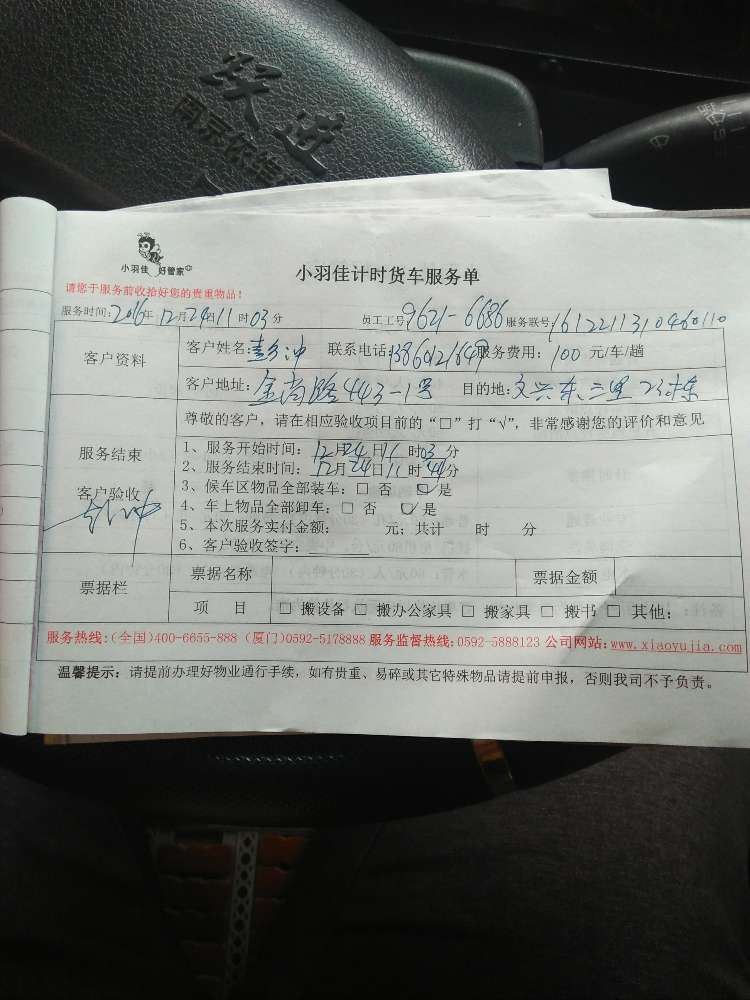 跃进
南京依维
小羽佳 好管家
小羽佳计时货车服务单
请您于服务前收拾好您的贵重物品!
服务时间:2016年12月24日11时03分 员工工号9621-6686 服务联号:1612211310460110
客户资料
客户姓名:彭冲 联系电话:13860121649 服务费用:100元/车/趟
客户地址:金尚路443-1号 目的地:文兴东二里
尊敬的客户,请在相应验收项目前的“□”打“√”,非常感谢您的评价和意见
服务结束
客户验收
1、服务开始时间:12月24日11时03分
2、服务结束时间:12月24日11时44分
3、候车区物品全部装车:□ 否 ☑ 是
4、车上物品全部卸车:□ 否 ☑ 是
5、本次服务实付金额: 元;共计 时 分
6、客户验收签字:
票据栏
票据名称 票据金额
项 目 □ 搬设备 □ 搬办公家具 □ 搬家具 □ 搬书 □ 其他:
服务热线:(全国)400-6655-888 (厦门)0592-5178888 服务监督热线:0592-5888123 公司网站:www.xiaoyujia.com
温馨提示:请提前办理好物业通行手续,如有贵重、易碎或其它特殊物品请提前申报,否则我司不予负责。